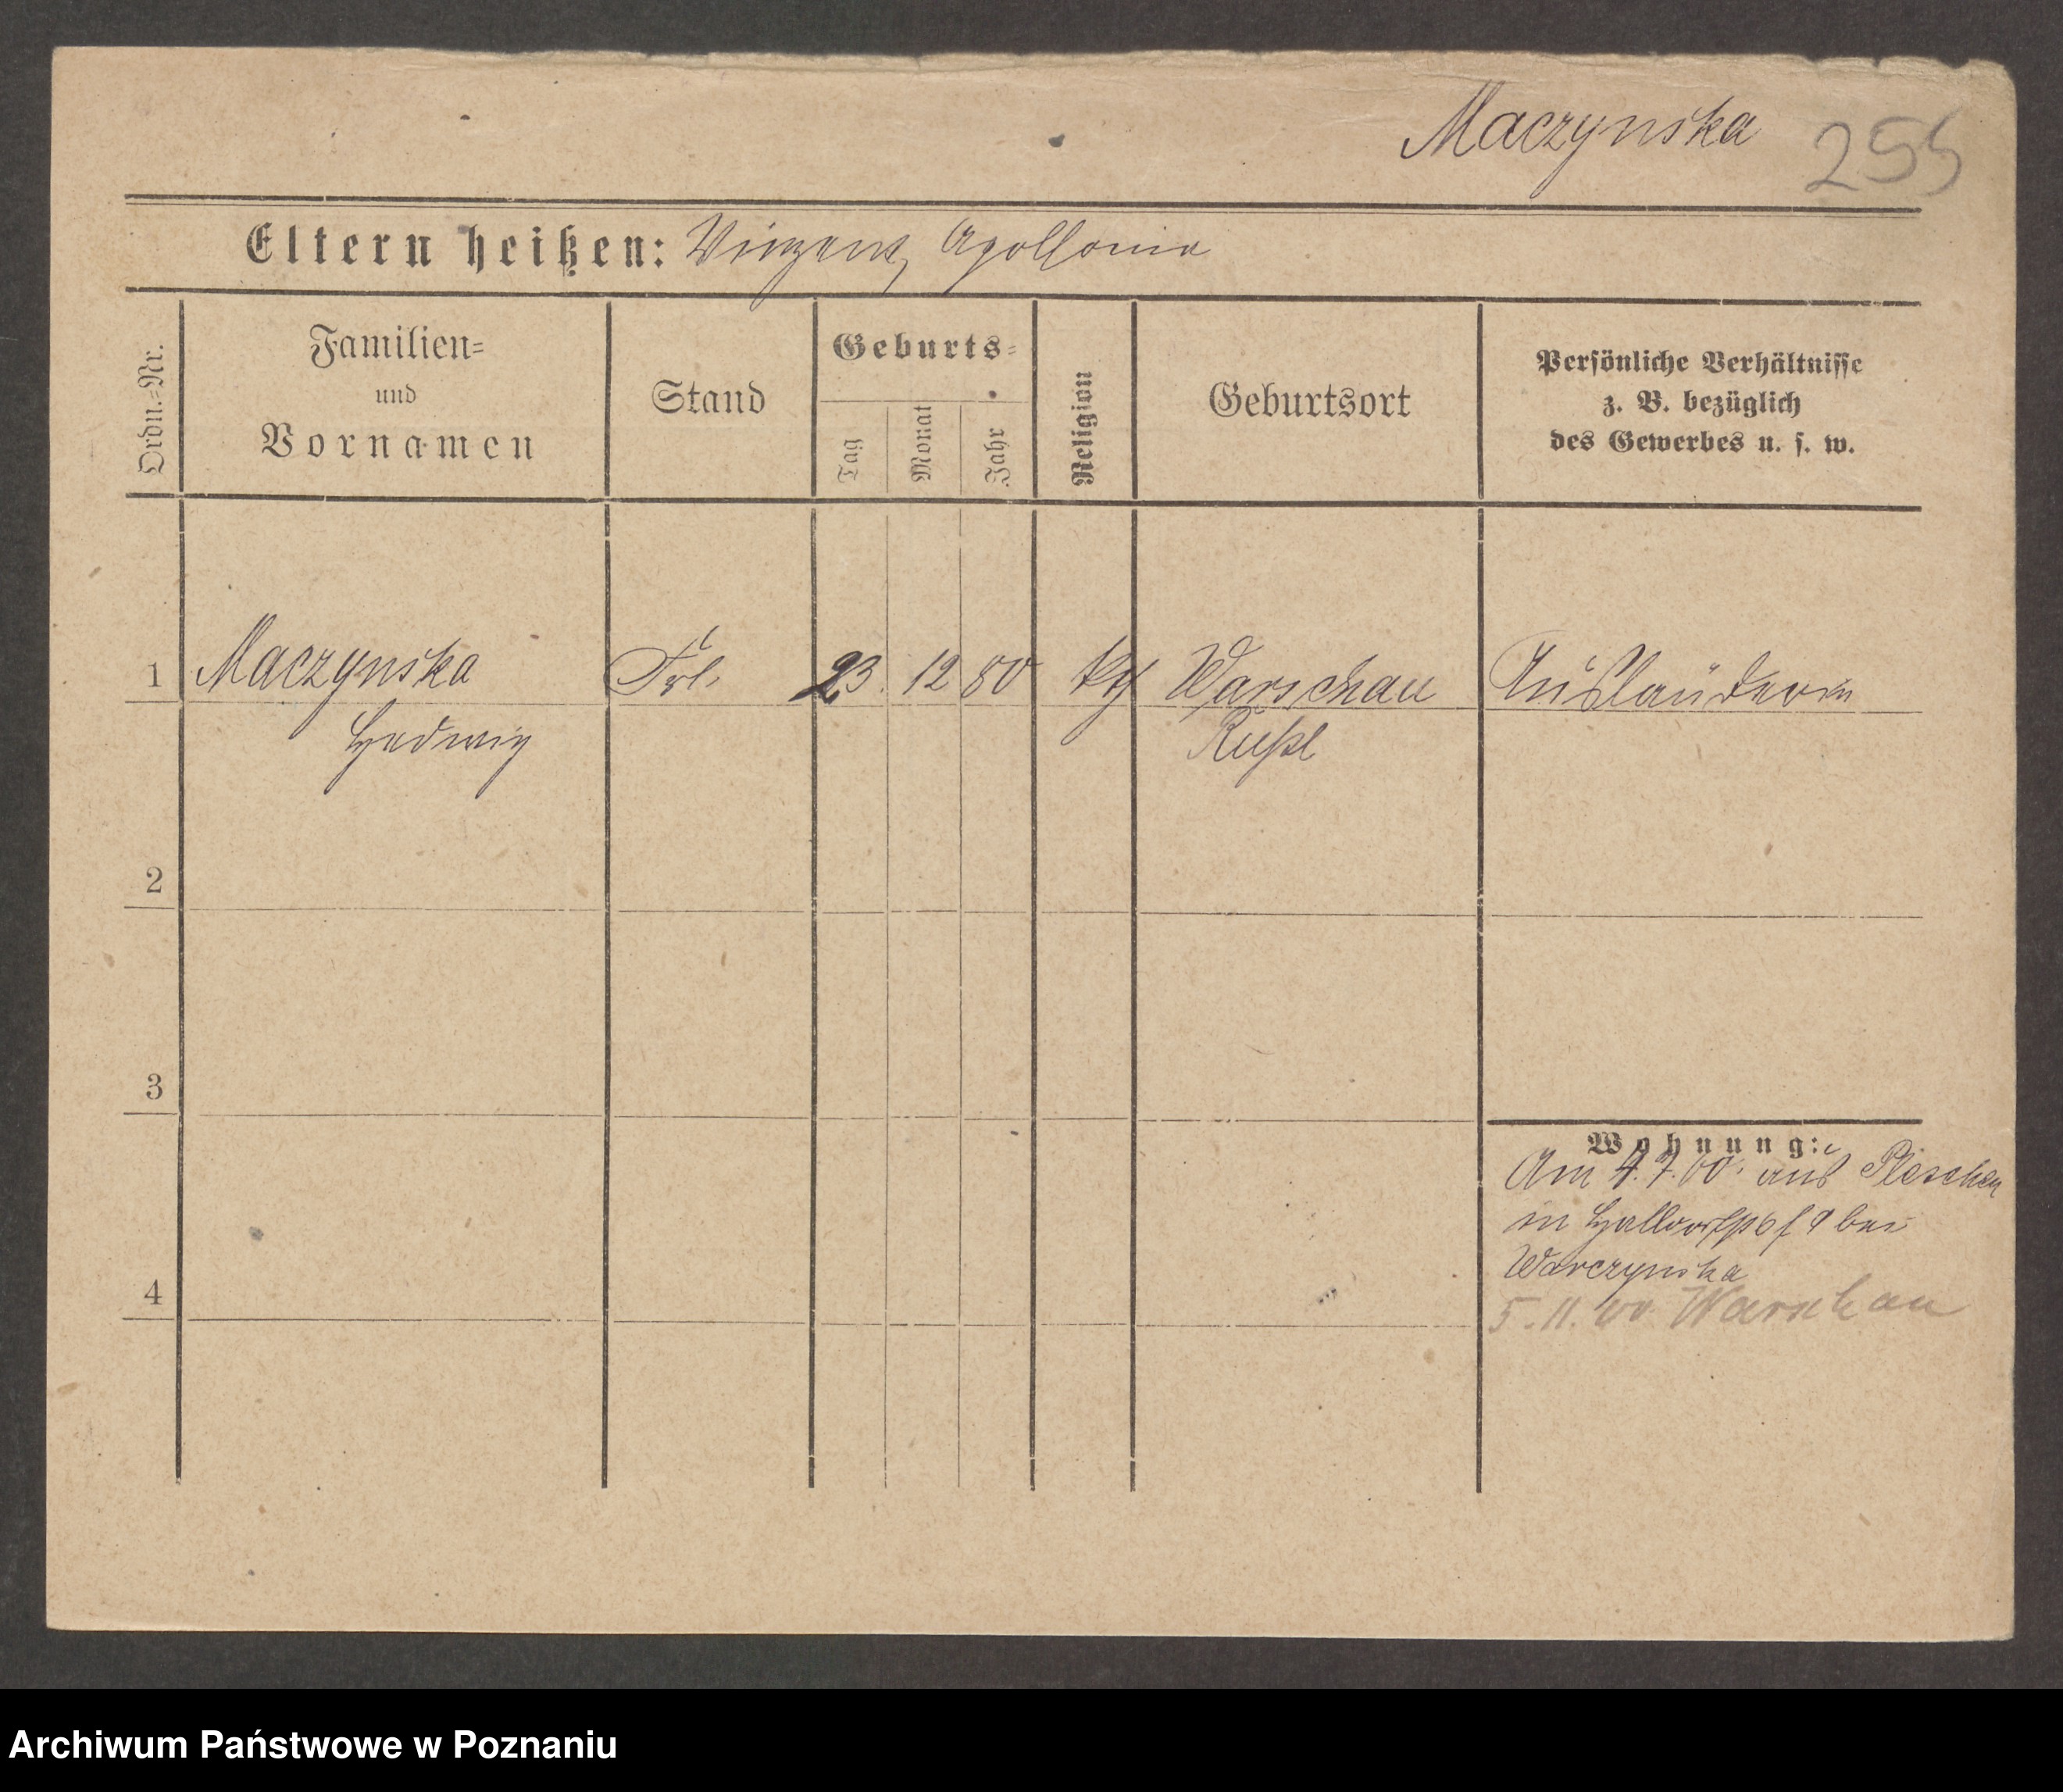 Maczynska 255
Eltern heißen: Vinzent, Apollonia
Ordn.=Nr.
Familien=
und
Vornamen
Stand
Geburts=
Tag
Monat
Jahr
Religion
Geburtsort
Persönliche Verhältnisse
z. B. bezüglich
des Gewerbes u. s. w.
1 Maczynska Frl. 23. 12 80 kth Warschau Ausländerin
Hedwig Rußl
2
3
Wohnung:
Am 4.7.00. aus Pleschen
in 9 bei
Warczynska
4
5.11.00 Warschau
Archiwum Państwowe w Poznaniu